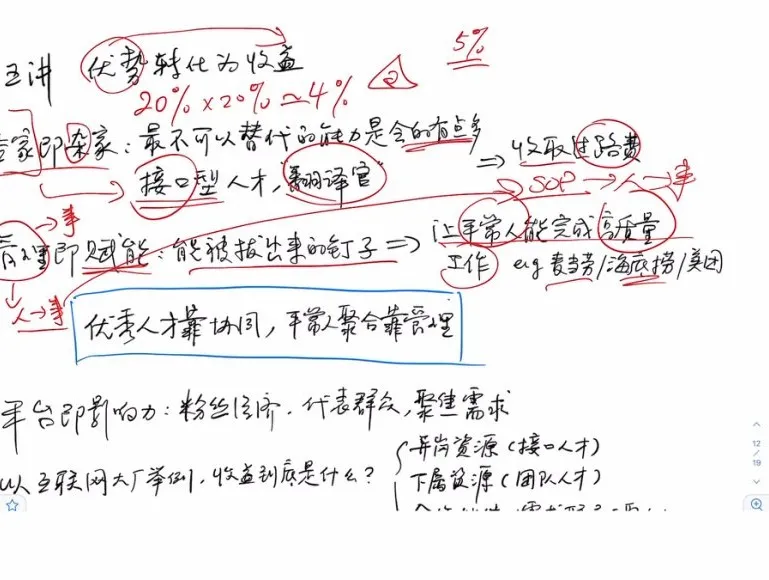 五讲 优势转化为收益
5%
20%×20%≈4%
专家即杂家：最不可以替代的能力是会的有点多
⇒ 收取过路费
接口型人才，"翻译官"
SOP → 人 → 事
→ 事
管理即赋能：能被拔出来的钉子 ⇒ 让平常人能完成高质量
工作 e.g 麦当劳/海底捞/美团
人→事
优秀人才靠协同，平常人聚合靠管理
平台即影响力：粉丝经济，代表群众，聚焦需求
以互联网大厂举例，收益到底是什么？
异岗资源（接口人才）
下属资源（团队人才）
12
/
19